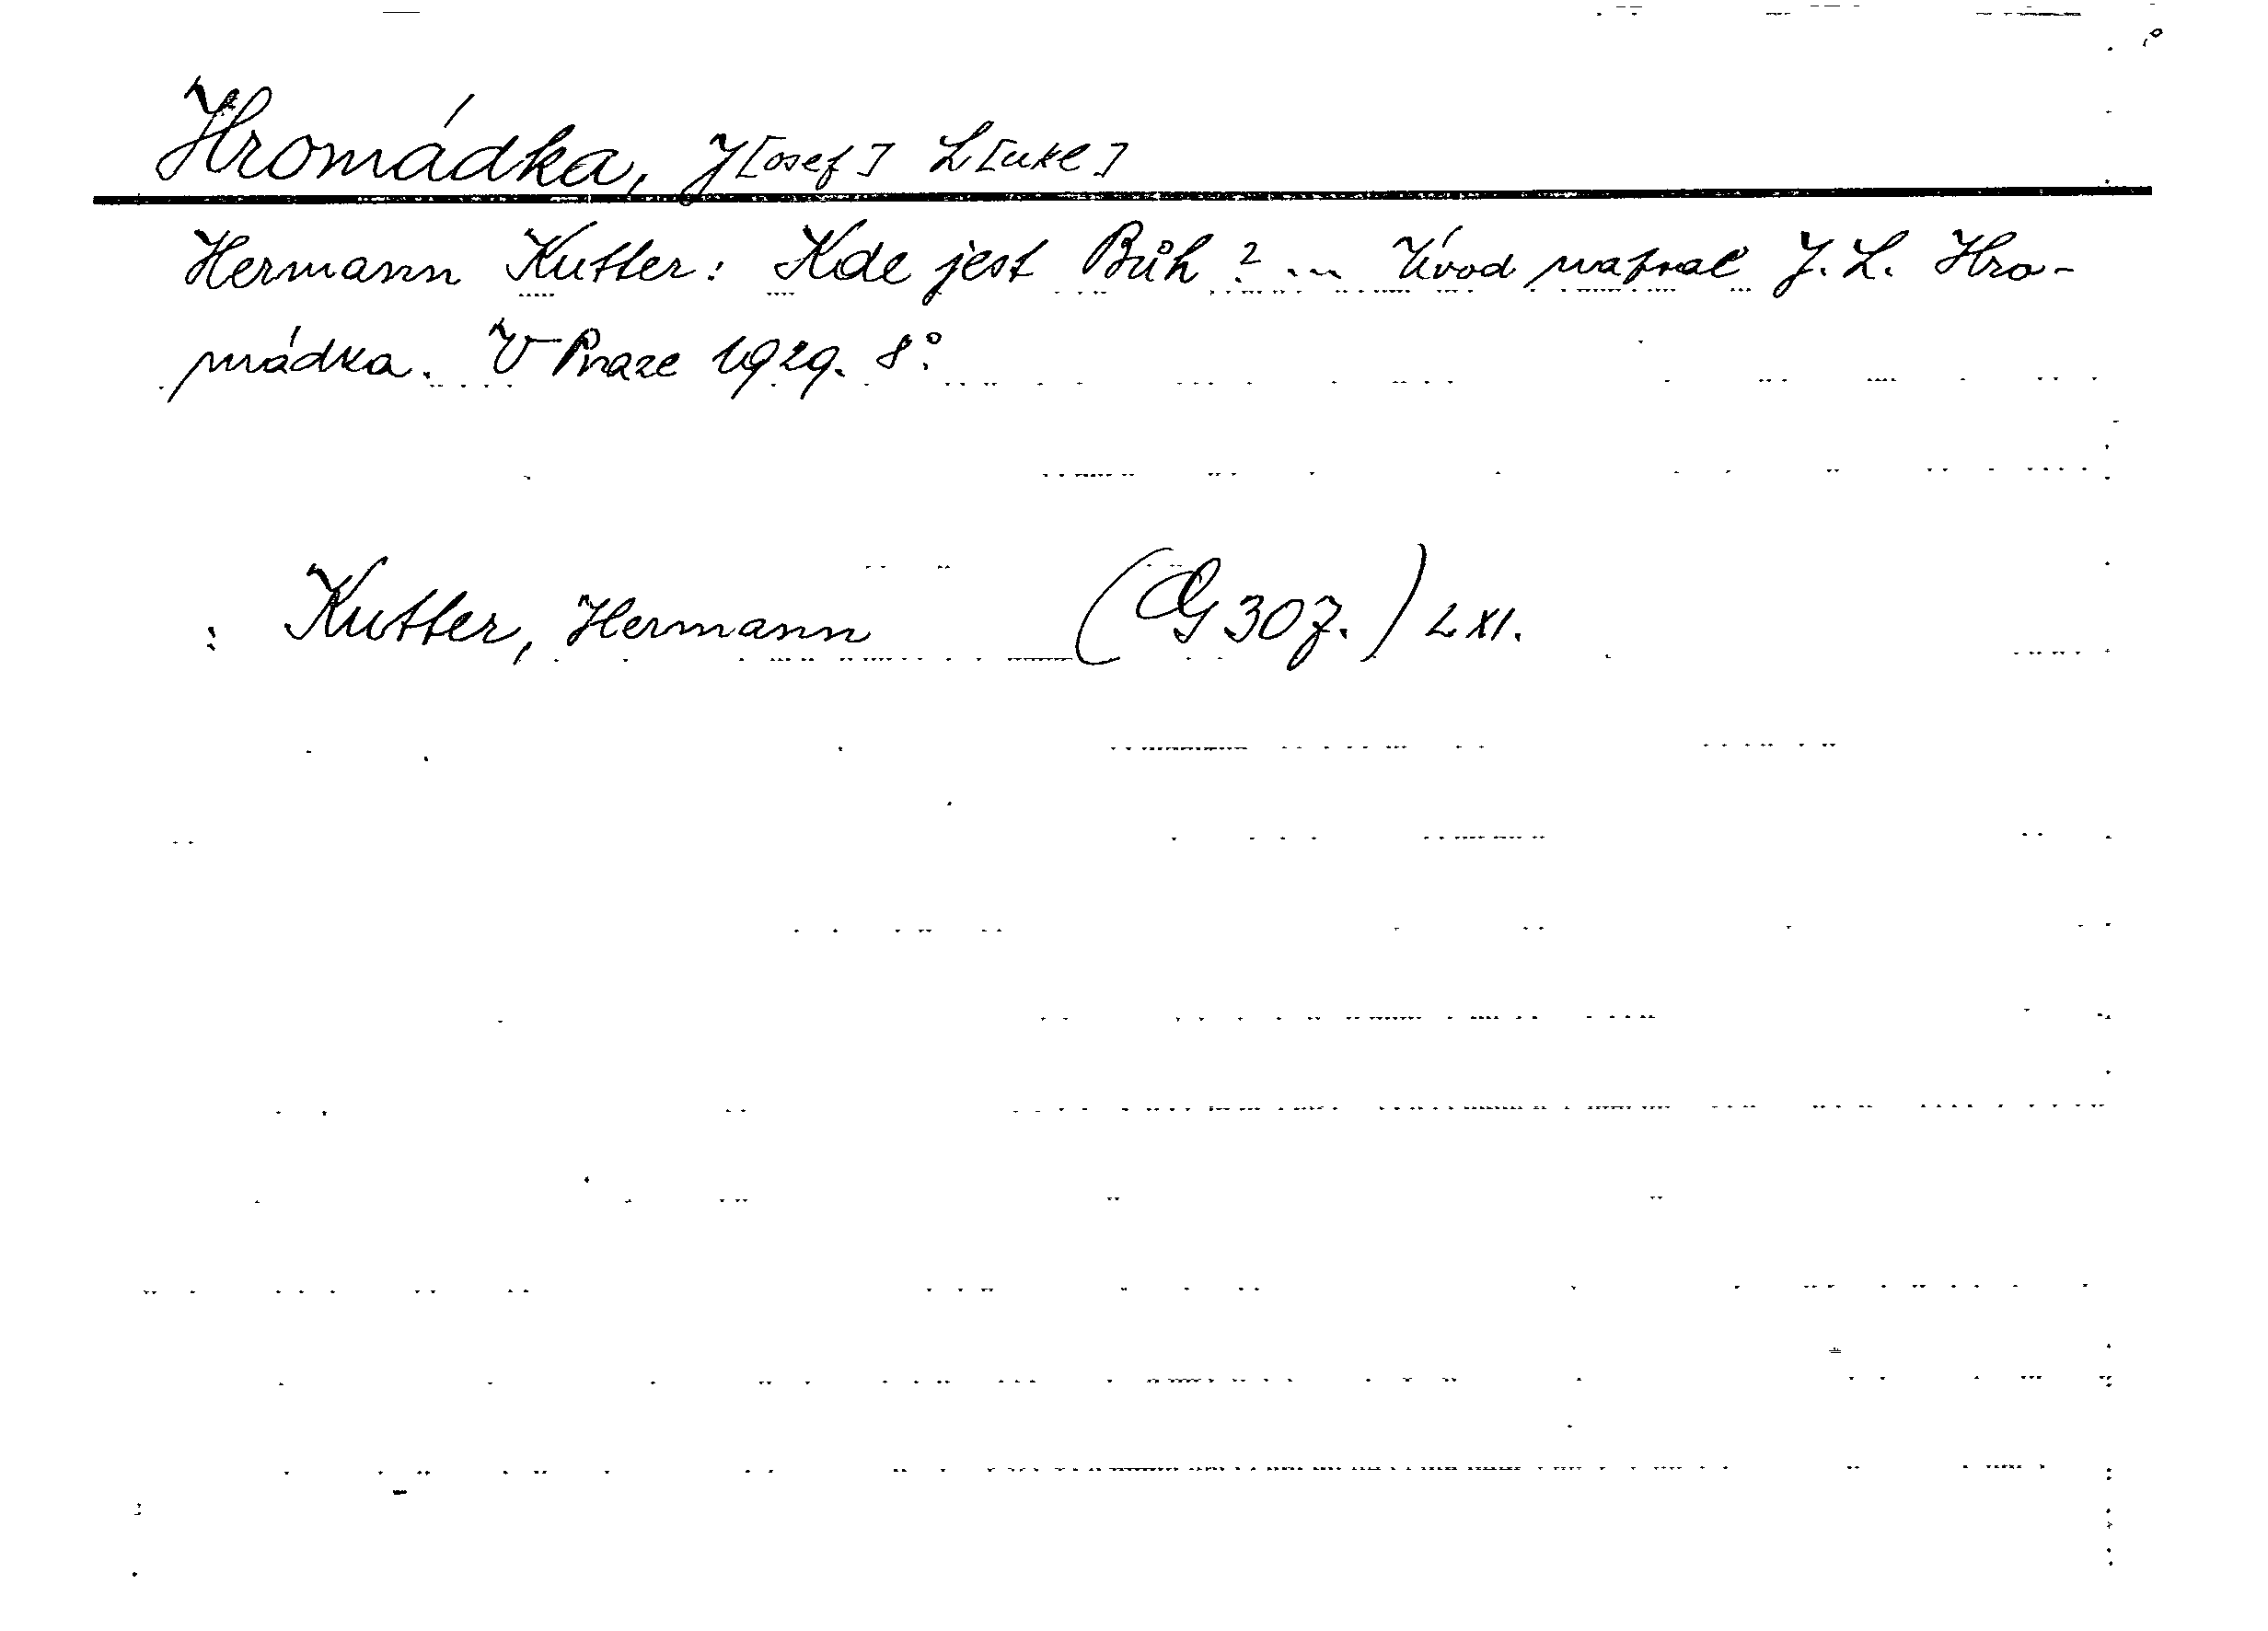 Hromádka, J[osef] L[ukl]
Hermann Kutter: Kde jest Bůh? ... Úvod napsal J. L. Hro-
mádka. V Praze 1929. 8°.
: Kutter, Hermann (G 307.) LXI.